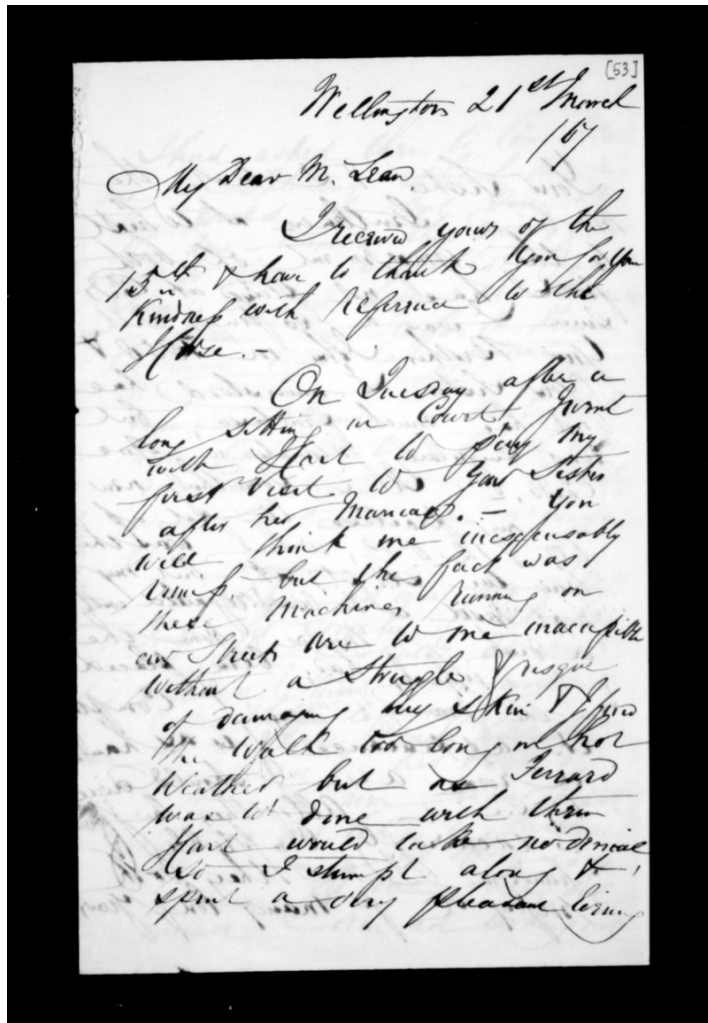 [53]
Wellington 21st March
/67
My Dear McLean.
I received yours of the
15th & have to thank you for your
Kindness with referrence to the
Horse. —
On Tuesday after a
long sitting in Court I went
with Hart to pay my
first visit to your Sister
after her Marriage. — You
will think me inexcusably
remiss. but the fact was
these Machines running on
our Streets are to me inaccessible
without a struggle & risque
of damaging my skin & I find
the walk too long in hot
weather but as Ferrard
was to dine with them
Hart would take no denial
so I stumpt along &
spent a very pleasant Evening